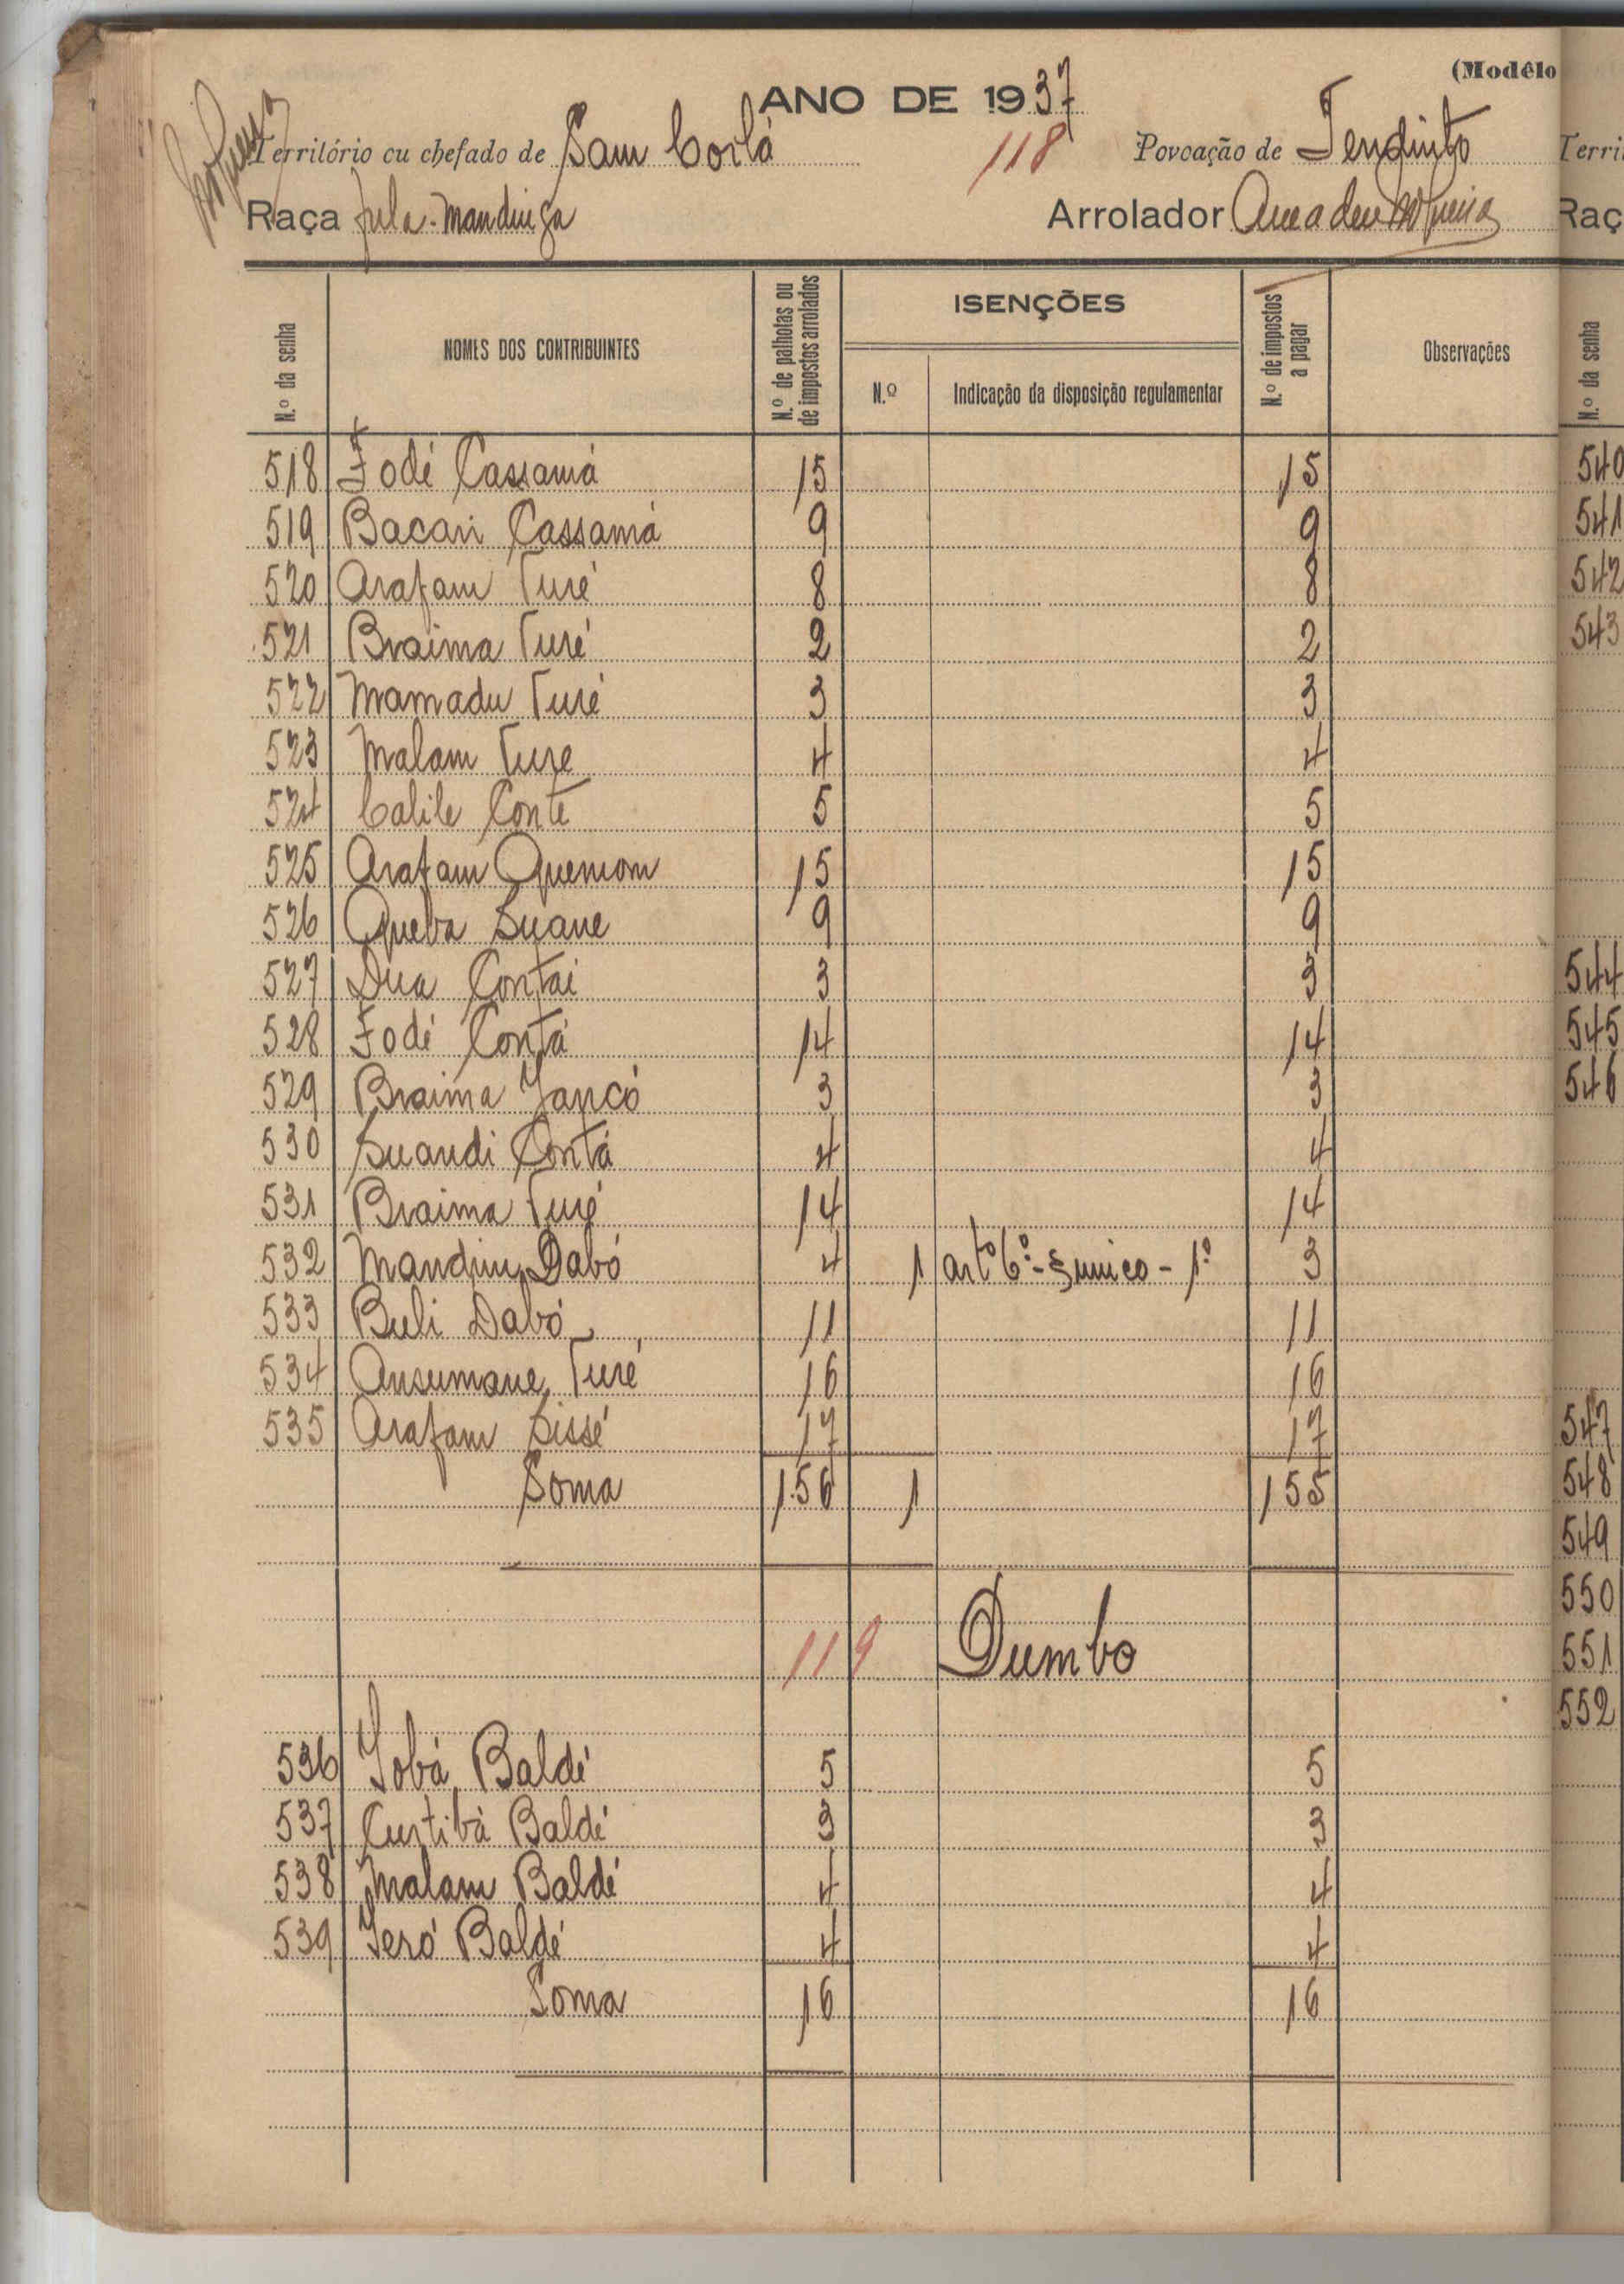 (Modêlo
ANO DE 1937
Território ou chefado de Sam Corlá 118 Povoação de Tendinto
Raça fula-mandinga Arrolador Amadeu Nogueira
N.º da senha NOMES DOS CONTRIBUINTES N.º de palhotas ou de impostos arrolados ISENÇÕES N.º Indicação da disposição regulamentar N.º de impostos a pagar Observações
518 Fodé Cassamá 15 15
519 Bacari Cassamá 9 9
520 Arafam Turé 8 8
521 Braima Turé 2 2
522 Mamadu Turé 3 3
523 Malam Ture 4 4
524 Calile Conte 5 5
525 Arafam Quemom 15 15
526 Queba Suane 9 9
527 Dua Contai 3 3
528 Fodé Contá 14 14
529 Braima Jancó 3 3
530 Suandi Contá 4 4
531 Braima Turé 14 14
532 Mandim Dabó 4 1 artº 6º - § unico - 1º 3
533 Buli Dabó 11 11
534 Ansumane Turé 16 16
535 Arafam Sissé 17 17
Soma 156 1 155
119 Dumbo
536 Jobá Baldé 5 5
537 Curtibá Baldé 3 3
538 Malam Baldé 4 4
539 Jeró Baldé 4 4
Soma 16 16
Terri
Raç
N.º da senha
540
541
542
543
544
545
546
547
548
549
550
551
552